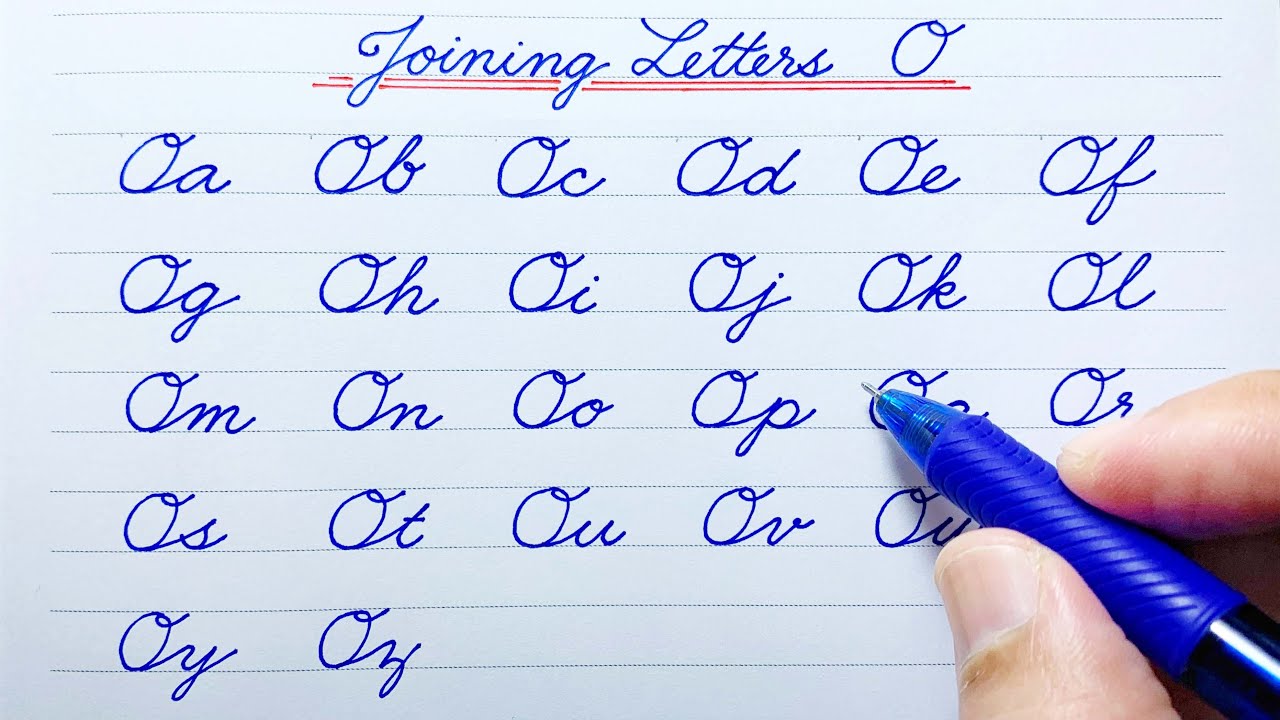 Joining Letters O
Oa Ob Oc Od Oe Of
Og Oh Oi Oj Ok Ol
Om On Oo Op Or
Os Ot Ou Ov
Oy Oz